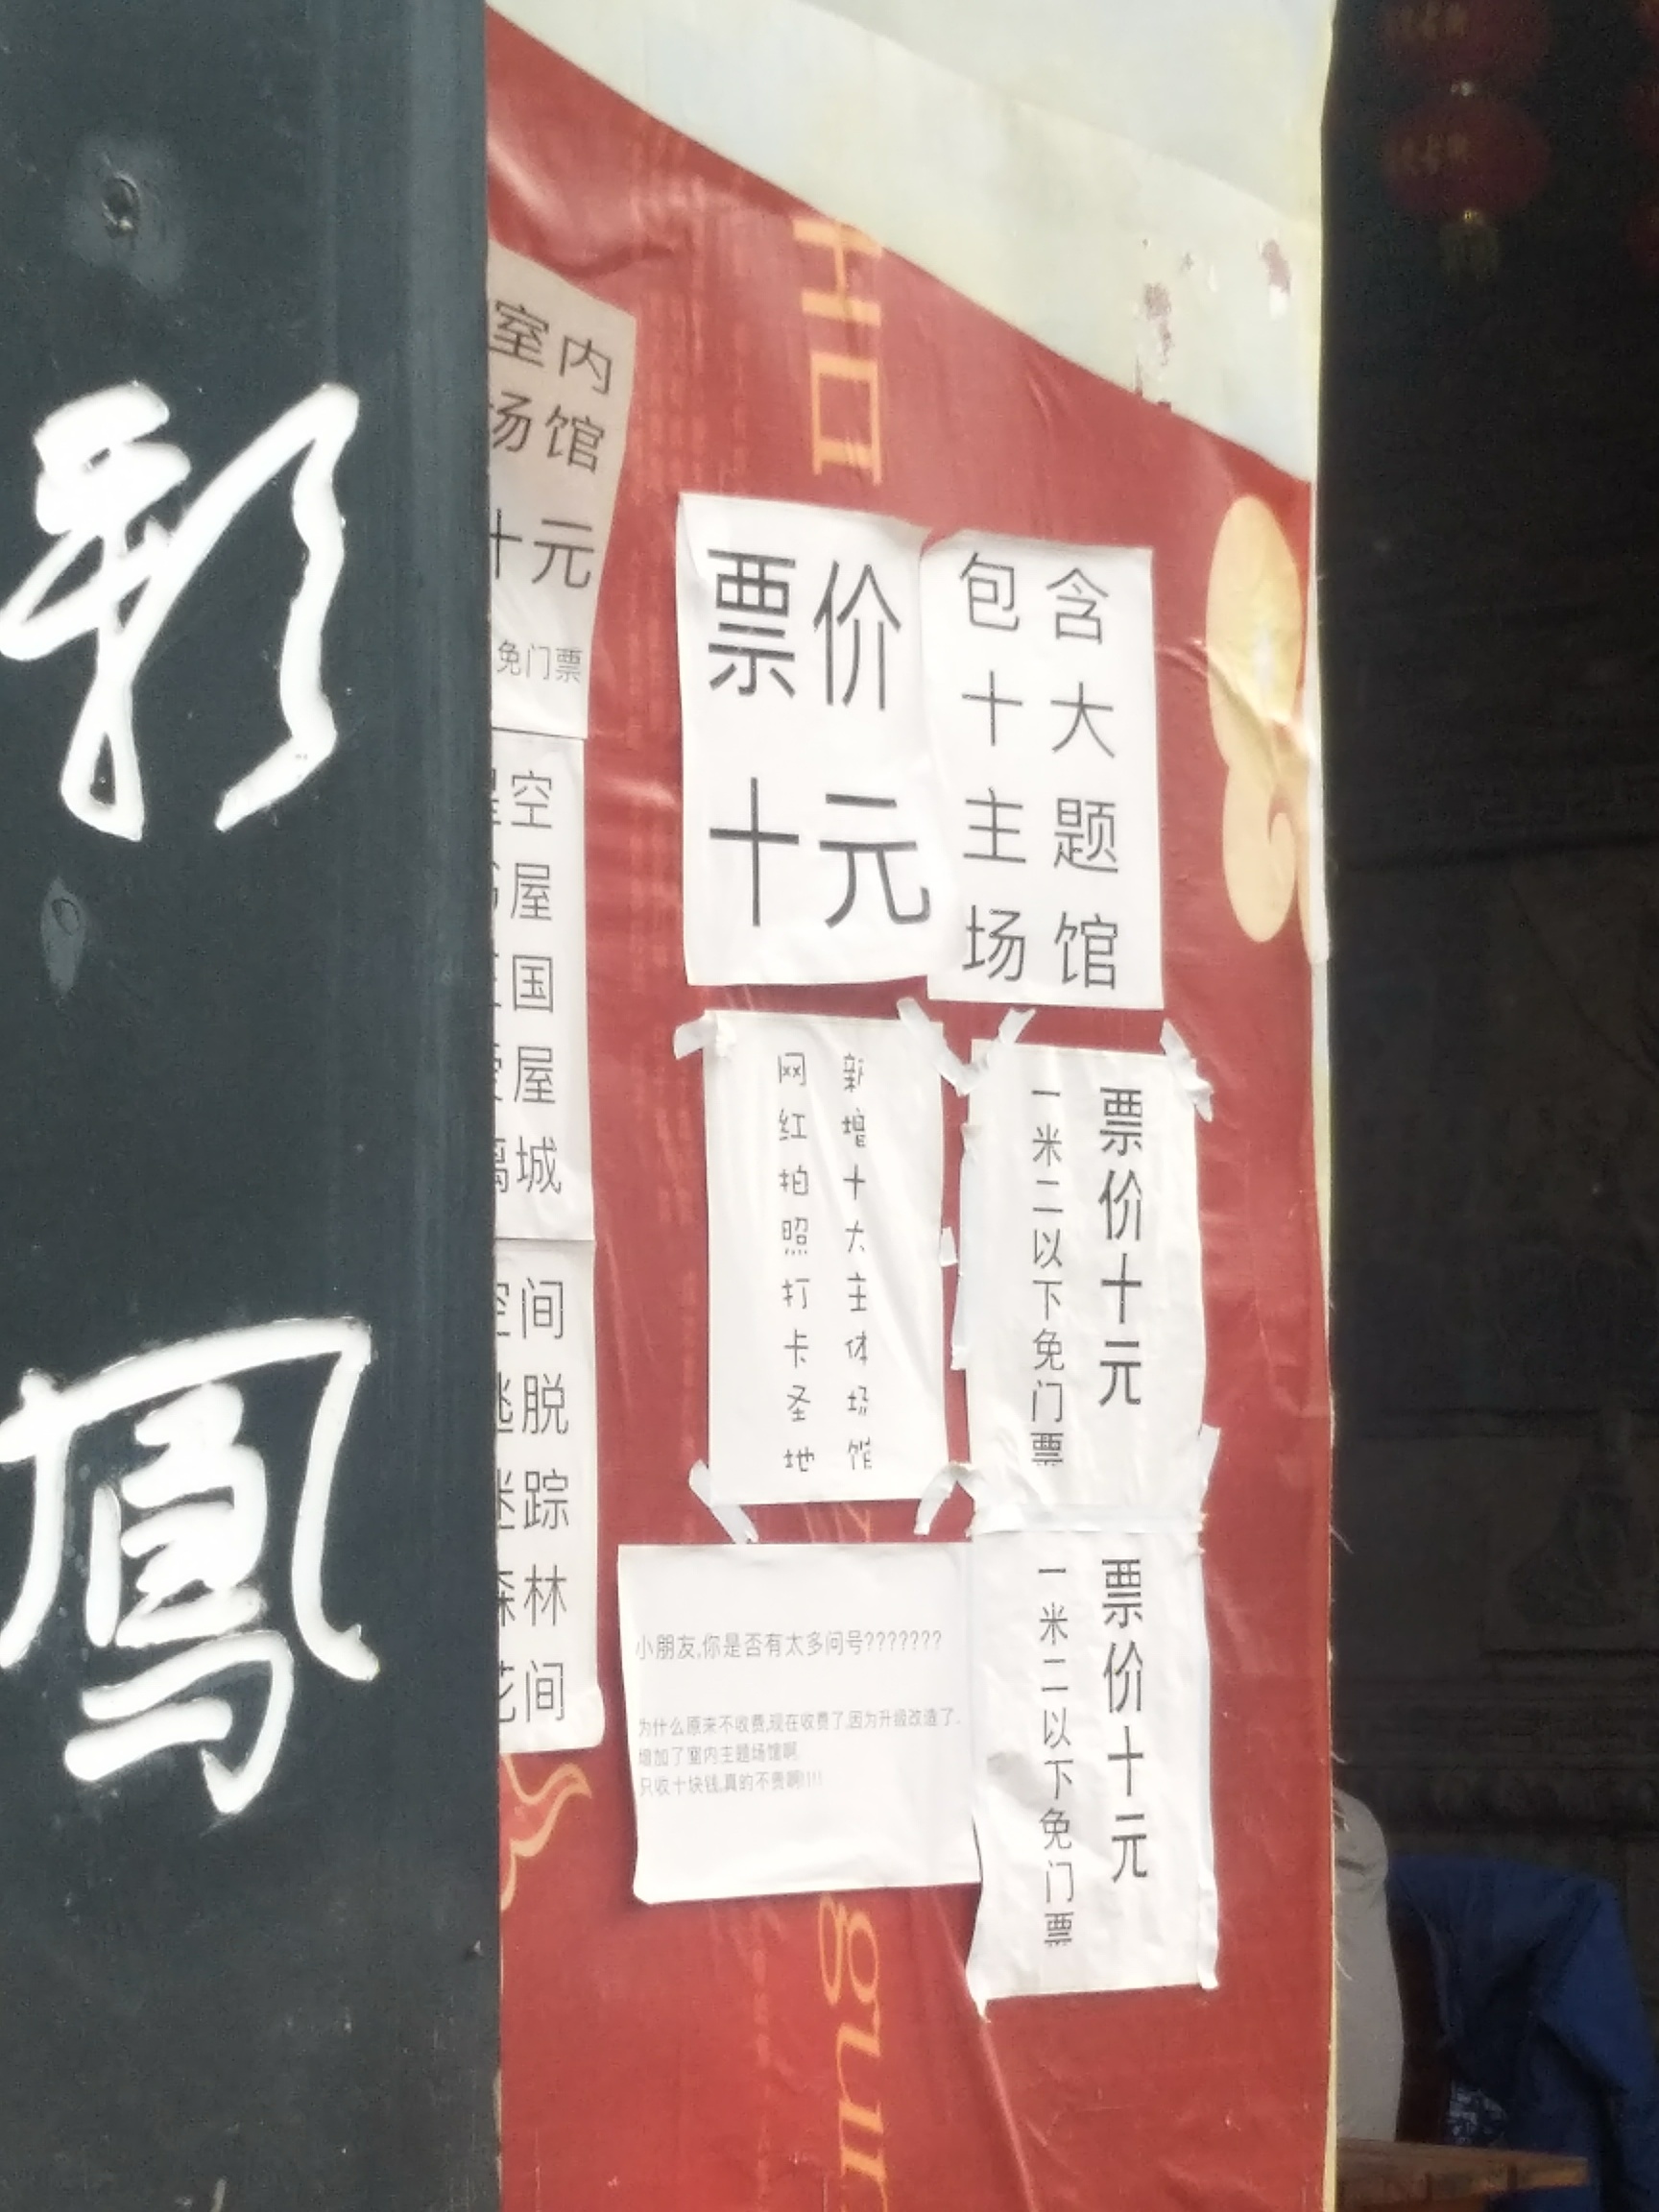 彩
鳳
室内
场馆
十元
免门票
空
屋
国
屋
城
间
脱
踪
林
间
票价
十元
包含
十大
主题
场馆
新增十大主体场馆
网红拍照打卡圣地
票价十元
一米二以下免门票
小朋友,你是否有太多问号???????
为什么原来不收费,现在收费了,因为升级改造了.
增加了室内主题场馆啊,
只收十块钱,真的不贵啊!!!!
票价十元
一米二以下免门票
gur